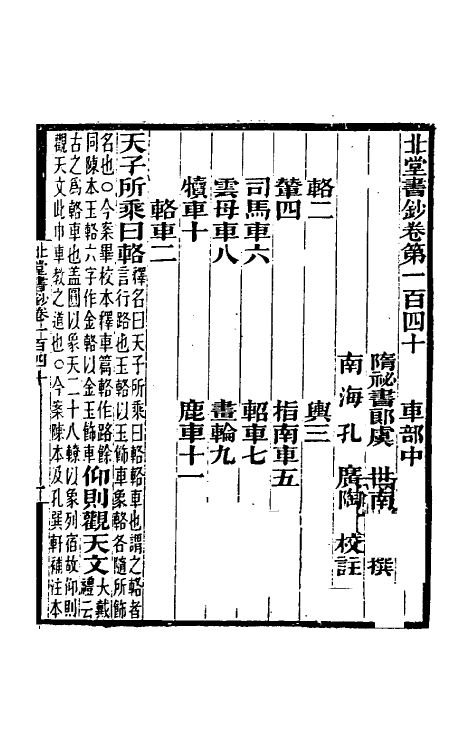 北堂書鈔卷第一百四十　車部中
隋祕書郎虞　世南　撰
南海孔　廣陶　校註
輅二　輿三
輦四　指南車五
司馬車六　軺車七
雲母車八　畫輪九
犢車十　鹿車十一
輅車二
天子所乘曰輅釋名曰天子所乘曰輅輅車也謂之輅者
言行路也玉輅以玉飾車象輅各隨所飾
名也○今案畢校本釋車篇輅作路餘
同陳本玉輅六字作金輅以金玉飾車仰則觀天文大戴
禮云
古之爲輅車也蓋圓以象天二十八轑以象列宿故仰則
觀天文此巾車教之道也○今案陳本及孔巽軒補注本
北堂書鈔卷一百四十